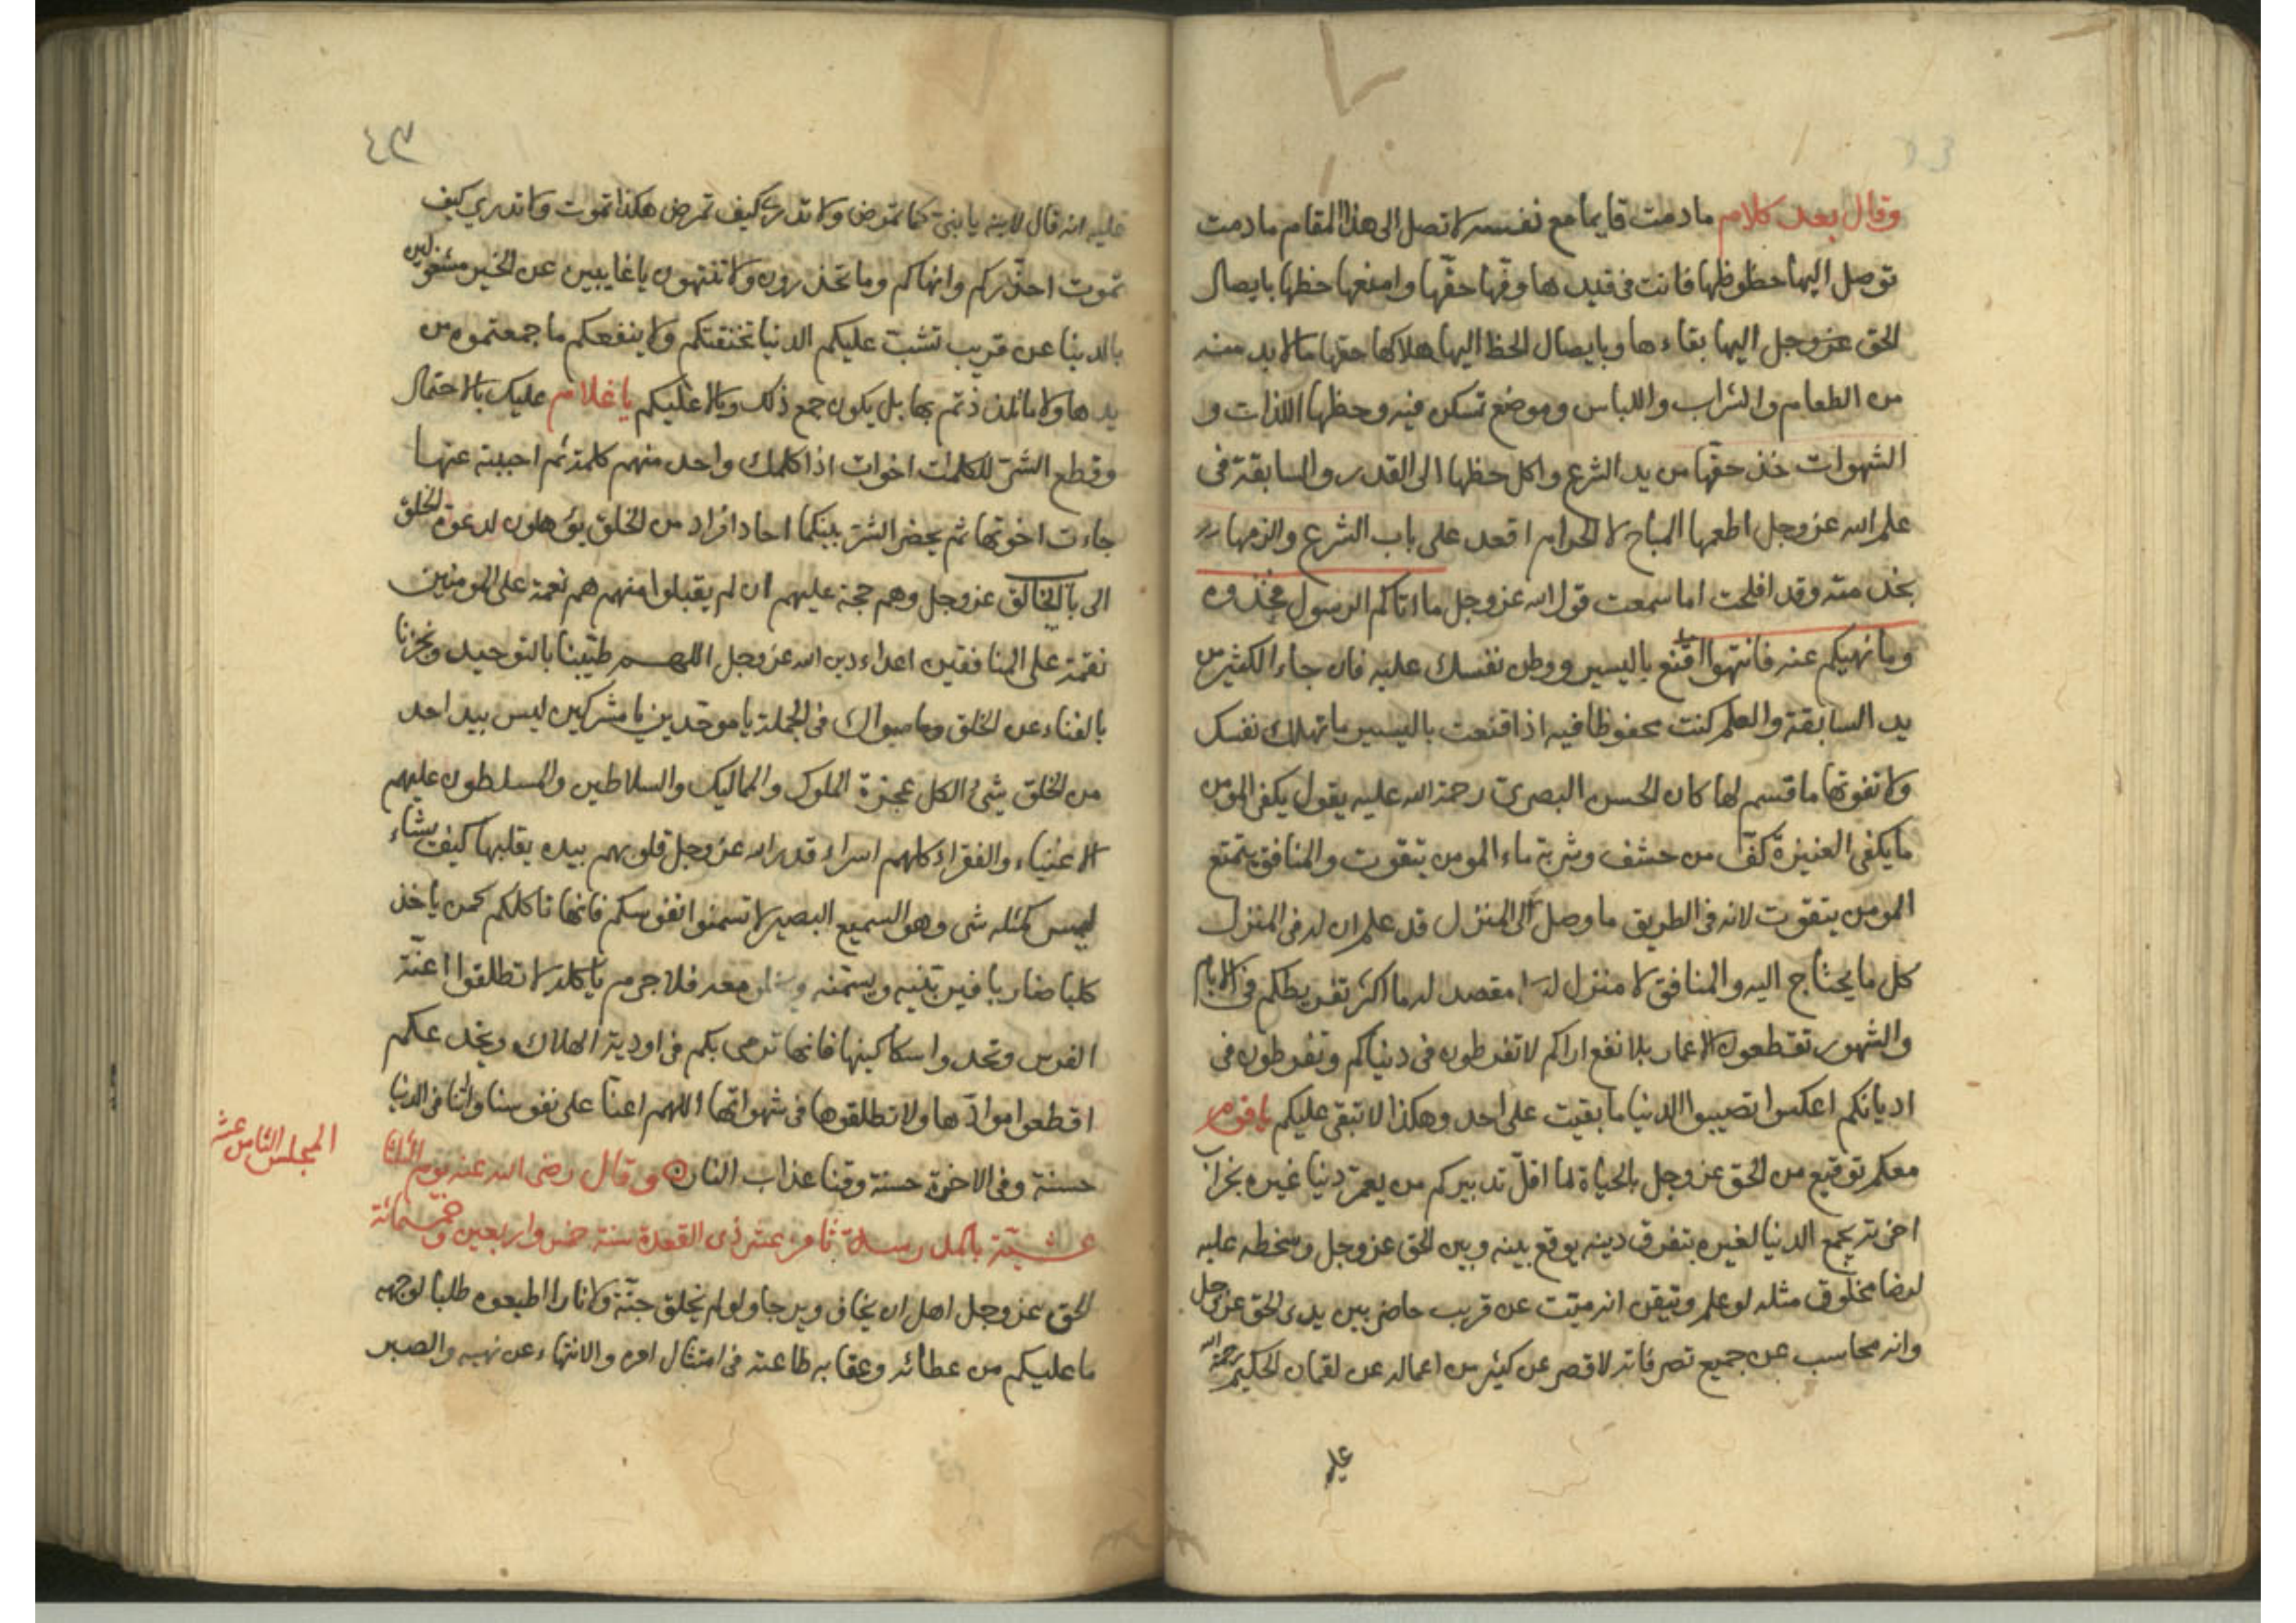 وقال بعد كلام ما دمت قايما مع نفسك لا تصل الى هذا المقام ما دمت
توصل اليها حظوظها فانت فى قيدها وفها حقها وامنعها حظها بايصال
الحق عز وجل اليها بقاءها وبايصال الحظ اليها هلاكها حقها ما لا بد منه
من الطعام والشراب واللباس وموضع تسكن فيه وحظها اللذات و
الشهوات خذ حقها من يد الشرع وكل حظها الى القدر والسابقة فى
علم الله عز وجل اطعمها المباح لا الحرام اقعد على باب الشرع والزمها
بخدمته وقد افلحت اما سمعت قول الله عز وجل ما اتاكم الرسول فخذوه
وما نهيكم عنه فانتهوا اقنع باليسير ووطن نفسك عليه فان جاء الكثير من
يد السابقة والعلم كنت محفوظا فيه اذا قنعت باليسير ما تهلك نفسك
ولا تفوتها ما قسم لها كان الحسن البصرى رحمة الله عليه يقول يكفى المومن
ما يكفى العنيزة كف من حشف وشربة ماء المومن يتقوت والمنافق يتمتع
المومن يتقوت لانه فى الطريق ما وصل الى المنزل قد علم ان له فى المنزل
كل ما يحتاج اليه والمنافق لا منزل له لا مقصد له ما اكثر تفريطكم فى الايام
والشهور تقطعون الاعمار بلا نفع اراكم لا تفرطون فى دنياكم وتفرطون فى
اديانكم اعكسوا تصيبوا الدنيا ما بقيت على احد وهكذا لا تبقى عليكم يا قوم
معكم توقيع من الحق عز وجل بالحياة لما اقل تدبيركم من يعمر دنيا غيره بخراب
اخرته يجمع الدنيا لغيره بتفرق دينه يوقع بينه وبين الحق عز وجل وسخطه عليه
لرضا مخلوق مثله لو علم وتيقن انه ميت عن قريب حاضر بين يدى الحق عز وجل
وانه محاسب عن جميع تصرفاته لاقصر عن كثير من اعماله عن لقمان الحكيم رحمة الله
عليه
٤٣
عليه انه قال لابنه يا بنى كما تمرض ولا تدرى كيف تمرض هكذا تموت ولا تدرى كيف
تموت احذركم وانهاكم وما تحذرون ولا تنتهون يا غايبين عن الخير مشغولين
بالدنيا عن قريب تشب عليكم الدنيا تخنقتكم ولا ينفعكم ما جمعتموه من
يدها ولا ما تلذذتم بها بل يكون جمع ذلك وبالا عليكم يا غلام عليك بالاحتمال
وقطع الشر للكلمات اخوات اذا كلمك واحد منهم كلمة ثم اجبته عنها
جاءت اخوتها ثم يحضر الشر بينكما احاد افراد من الخلق يؤهلون لدعوة الخلق
الى باب الخالق عز وجل وهم حجة عليهم ان لم يقبلوا منهم هم نعمة على المومنين
نقمة على المنافقين اعداء دين الله عز وجل اللهم طيبنا بالتوحيد وبخرنا
بالفناء عن الخلق وما سواك فى الجملة يا موحدين يا مشركين ليس بيد احد
من الخلق شئ الكل عجزة الملوك والمماليك والسلاطين والمسلطون عليهم
الاغنياء والفقراء كلهم اسراء قدر الله عز وجل قلوبهم بيده يقلبها كيف يشاء
ليس كمثله شى وهو السميع البصير لا تسمنوا نفوسكم فانها تاكلكم كمن ياخذ
كلبا ضاريا فيربيه ويسمنه معه فلا جرم ياكله لا تطلقوا اعنة
النفوس وتحدوا سكاكينها فانها ترمى بكم فى اودية الهلاك وتخدعكم
اقطعوا موادها ولا تطلقوها فى شهواتها اللهم اعنا على نفوسنا واتنا فى الدنيا
حسنة وفى الاخرة حسنة وقنا عذاب النار وقال رضى الله عنه يوم الثلثا
عشية بالمدرسة ثامن عشر ذى القعدة سنة خمس واربعين وخمسمائة
المجلس الثامن عشر
الحق عز وجل اهل ان يخاف ويرجا ولو لم يخلق جنة ولا نارا اطيعوه طلبا لوجهه
ما عليكم من عطائه وعقابه طاعته فى امتثال امره والانتهاء عن نهيه والصبر